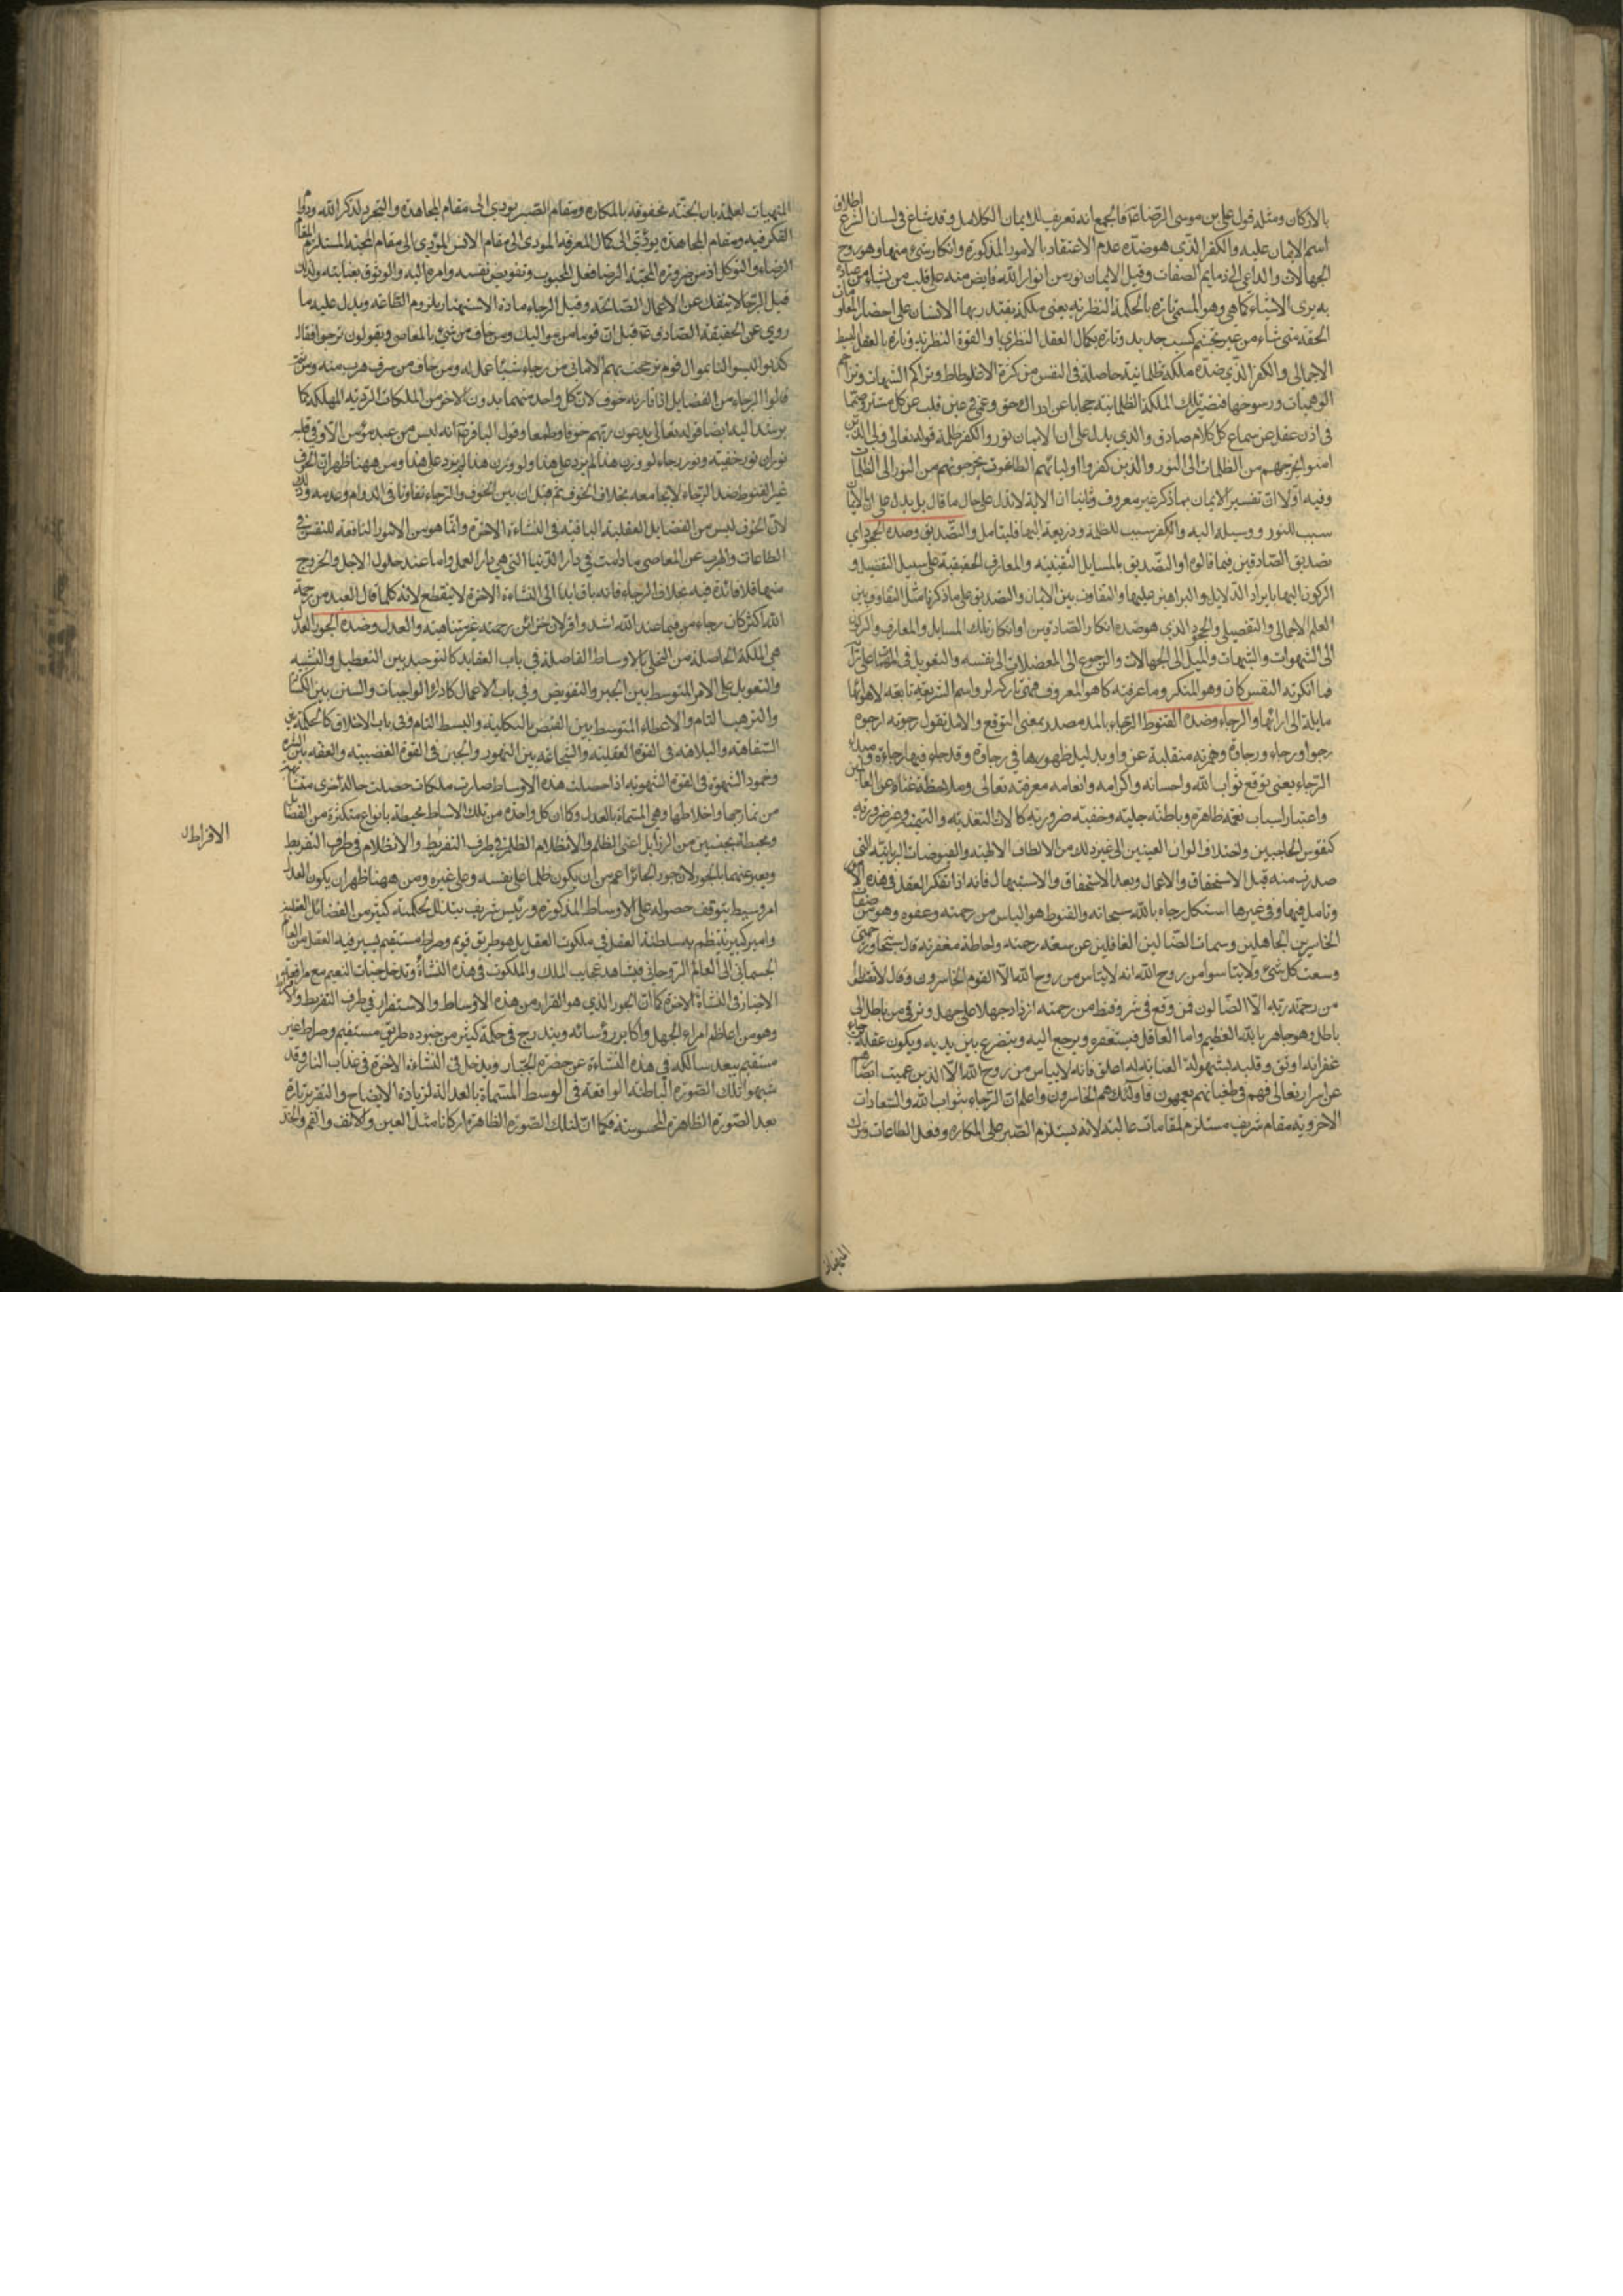 بالاركان ومثله قول علي بن موسى الرضا ع فالجمع انه تعريف للايمان الكامل وقد شاع في لسان الشرع اطلاق
اسم الايمان عليه والكفر الذي هو ضده عدم الاعتقاد بالامور المذكورة وانكار شيء منها وهو روح
الجهالات والداعي الى ذمايم الصفات وقيل الايمان نور من انوار الله فايض منه على قلب من يشاء من عباده
به يرى الاشياء كما هي وهو المسمى تارة بالحكمة النظرية يعني ملكة يقتدر بها الانسان على احضار المعلومات
الحقة متى شاء من غير تجشم كسب جديد وتارة بكمال العقل النظري او القوة النظرية وتارة بالعقل البسيط
الاجمالي والكفر الذي ضده ملكة ظلمانية حاصلة في النفس من كثرة الاغلوطات وتراكم الشبهات وتزاحم
الوهميات ورسوخها فتصير تلك الملكة الظلمانية حجابا عن ادراك حق وعمى في عين قلب عن كل مستنير وصمما
في اذن عقل عن سماع كل كلام صادق والذي يدل على ان الايمان نور والكفر ظلمة قوله تعالى ولي الذين
امنوا يخرجهم من الظلمات الى النور والذين كفروا اولياءهم الطاغوت يخرجونهم من النور الى الظلمات
وفيه اولا ان تفسير الايمان بما ذكر غير معروف وثانيا ان الاية لا تدل على حال ما قال بل يدل على ان الايمان
سبب للنور ووسيلة اليه والكفر سبب للظلمة وذريعة اليها فليتامل والتصديق وضده الجحود اي
تصديق الصادقين فيما قالوه او التصديق بالمسايل اليقينية والمعارف الحقيقية على سبيل التفصيل و
الركون اليها بايراد الدلايل والبراهين عليها والتفاوت بين الايمان والتصديق على ما ذكرنا مثل التفاوت بين
العلم الاجمالي والتفصيلي والجحود الذي هو ضده انكار الصادقين او انكار تلك المسايل والمعارف والركون
الى الشهوات والشبهات والميل الى الجهالات والرجوع الى المعضلات الى نفسه والتعويل في المهمات على رأيه
فما انكرته النفس كان وهو المنكر وما عرفته كما هو المعروف فمتى تاركه لرواسم الشريعة تابعة لاهوائها
مايلة الى ارائها والرجاء وضده القنوط الرجاء بالمد مصدر بمعنى التوقع والامل تقول رجوته ارجوه
رجوا ورجاء ورجاوة وهمزته منقلبة عن واو بدليل ظهورها في رجاوة وقد جاء فيها رجاءة ومبدء
الرجاء يعني توقع ثواب الله واحسانه واكرامه وانعامه معرفته تعالى وملاحظة غناه عن العالمين
واعتبار اسباب نعمه ظاهرة وباطنة جلية وخفية ضرورية كالات التغذية والتنمية وغير ضرورية
كتقوس الحاجبين واختلاف الوان العينين الى غير ذلك من الالطاف الالهية والفيوضات الربانية التي
صدرت منه قبل الاستحقاق والاعمال وبعد الاستحقاق والاستيهال فانه اذا تفكر العقل في هذه الامور
وتامل فيها وفي غيرها استكمل رجاه بالله سبحانه والقنوط هو الياس من رحمته وعفوه وهو من صفات
الخاسرين الجاهلين وسمات الضالين الغافلين عن سعة رحمته واحاطة مغفرته قال سبحانه ورحمتي
وسعت كل شيء ولا تياسوا من روح الله انه لا يياس من روح الله الا القوم الخاسرون وقال لا يقنط
من رحمة ربه الا الضالون فمن وقع في شر وقنط من رحمته ازداد جهلا على جهل وترقى من باطل الى
باطل وهو جاهر بالله العظيم واما العاقل فيستغفره ويرجع اليه ويتضرع بين يديه ويكون عقله برجاء
غفرانه اوثق وقلبه بشمولة العناية له اعلق فانه لا يياس من روح الله الا الذين عميت ابصارهم
عن اسراره تعالى فهم في طغيانهم يعمهون فاولئك هم الخاسرون واعلم ان الرجاء بثواب الله والسعادات
الاخروية مقام شريف مستلزم لمقامات عالية لانه يستلزم الصبر على المكاره وفعل الطاعات وترك
المنهيات
المنهيات لعلمه بان الجنة محفوفة بالمكاره ومقام الصبر يودي الى مقام المجاهدة والتجرد لذكر الله ودوام
الفكر فيه ومقام المجاهدة يؤدي الى كمال المعرفة المودي الى مقام الانس المؤدي الى مقام المحبة المستلزم لمقام
الرضاء والتوكل اذ من ضرورة المحبة الرضا بفعل المحبوب وتفويض نفسه وامره اليه والوثوق بعنايته ولذلك
قيل الرجا لا ينفك عن الاعمال الصالحة وقيل الرجاء مادة الاستهتار بلزوم الطاعة ويدل عليه ما
روي عن الحقيقة الصادق ع قيل ان قوما من مواليك يلمون بالمعاصي ويقولون نرجوا فقال
كذبوا ليسوا لنا بموال قوم ترجحت بهم الاماني من رجاء شيئا عمل له ومن خاف من شيء هرب منه ومن ثم
قالوا الرجاء من الفضايل اذا قارنه خوف لان كل واحد منهما بدون الاخر من الملكات الردية المهلكة كما
يرشد اليه ايضا قوله تعالى يدعون ربهم خوفا وطمعا وقول الباقر ع انه ليس من عبد مؤمن الا وفي قلبه
نوران نور خيفة ونور رجاء لو وزن هذا لم يزد على هذا ولو وزن هذا لم يزد على هذا ومن ههنا ظهر ان الخوف
غير القنوط ضد الرجاء لا يجامعه بخلاف الخوف ثم قيل ان بين الخوف والرجاء تفاوتا في الدوام وعدمه وذلك
لان الخوف ليس من الفضايل العقلية الباقية في النشاءة الاخرة وانما هو من الامور النافعة للنفس في
الطاعات والهرب عن المعاصي ما دامت في دار الدنيا التي هي دار العمل واما عند حلول الاجل والخروج
منها فلا فائدة فيه بخلاف الرجاء فانه باق ابدا الى النشاءة الاخرة لا ينقطع لانه كلما قال العبد من رحمة
الله اكثر كان رجاءه فيما عند الله اشد واوفر لان خزائن رحمته غير متناهية والعدل وضده الجور العدل
هي الملكة الحاصلة من التحلي بالاوساط الفاصلة في باب العقايد كالتوحيد بين التعطيل والتشبيه
والتعويل على الامر المتوسط بين الجبر والتفويض وفي باب الاعمال كاداء الواجبات والسنن بين الكسالة
والترهب التام والاعطاء المتوسط بين القبض بالكلية والبسط التام وفي باب الاخلاق كالحكمة بين
السفاهة والبلاهة في القوة العقلية والشجاعة بين التهور والجبن في القوة الغضبية والعفة بين الشره
وخمود الشهوة في القوة الشهوية اذا حصلت هذه الاوساط صارت ملكات حصلت حالة اخرى متشابهة
من تمازجها واختلاطها وهي المسماة بالعدل وكما ان كل واحدة من تلك الاوساط محيطة بانواع متكثرة من الفضايل
ومحيطة بجنسين من الرذايل اعني الظلم والانظلام الظلم في طرف التفريط والانظلام في طرف التفريط
الافراط
ويعبر عنهما بالجور لان جور الجائر اعم من ان يكون ظلما على نفسه وعلى غيره ومن ههنا ظهر ان يكون العدل
امر وسيط يتوقف حصوله على الاوساط المذكورة ورئيس شريف يتذلل لحكمته كثير من الفضائل العقلية
وامير كبير ينتظم به سلطنة العقل في ملكوت العقل بل هو طريق قويم وصراط مستقيم يسير فيه العقل من العالم
الجسماني الى العالم الروحاني فيشاهد عجايب الملك والملكوت في هذه النشأة وتدخل جنات النعيم مع مرافقة
الاخيار في النشاءة الاخرة كما ان الجور الذي هو الفرار من هذه الاوساط والاستقرار في طرف التفريط والافراط
وهو من اعاظم امراء الجهل واكابر رؤسائه ويندرج في حكمه كثير من جنوده طريق مستقيم وصراط غير
مستقيم يبعد سالكه في هذه النشاءة عن حضرة الجبار ويدخل في النشاءة الاخرة في عذاب النار وقد
شبهوا تلك الصورة الباطنة الواقعة في الوسط المسماة بالعدالة لزيادة الايضاح والتقرير تارة
بعد الصورة الظاهرة المحسوسة فكما ان لتلك الصورة الظاهرة اركانا مثل العين والانف والفم والخد